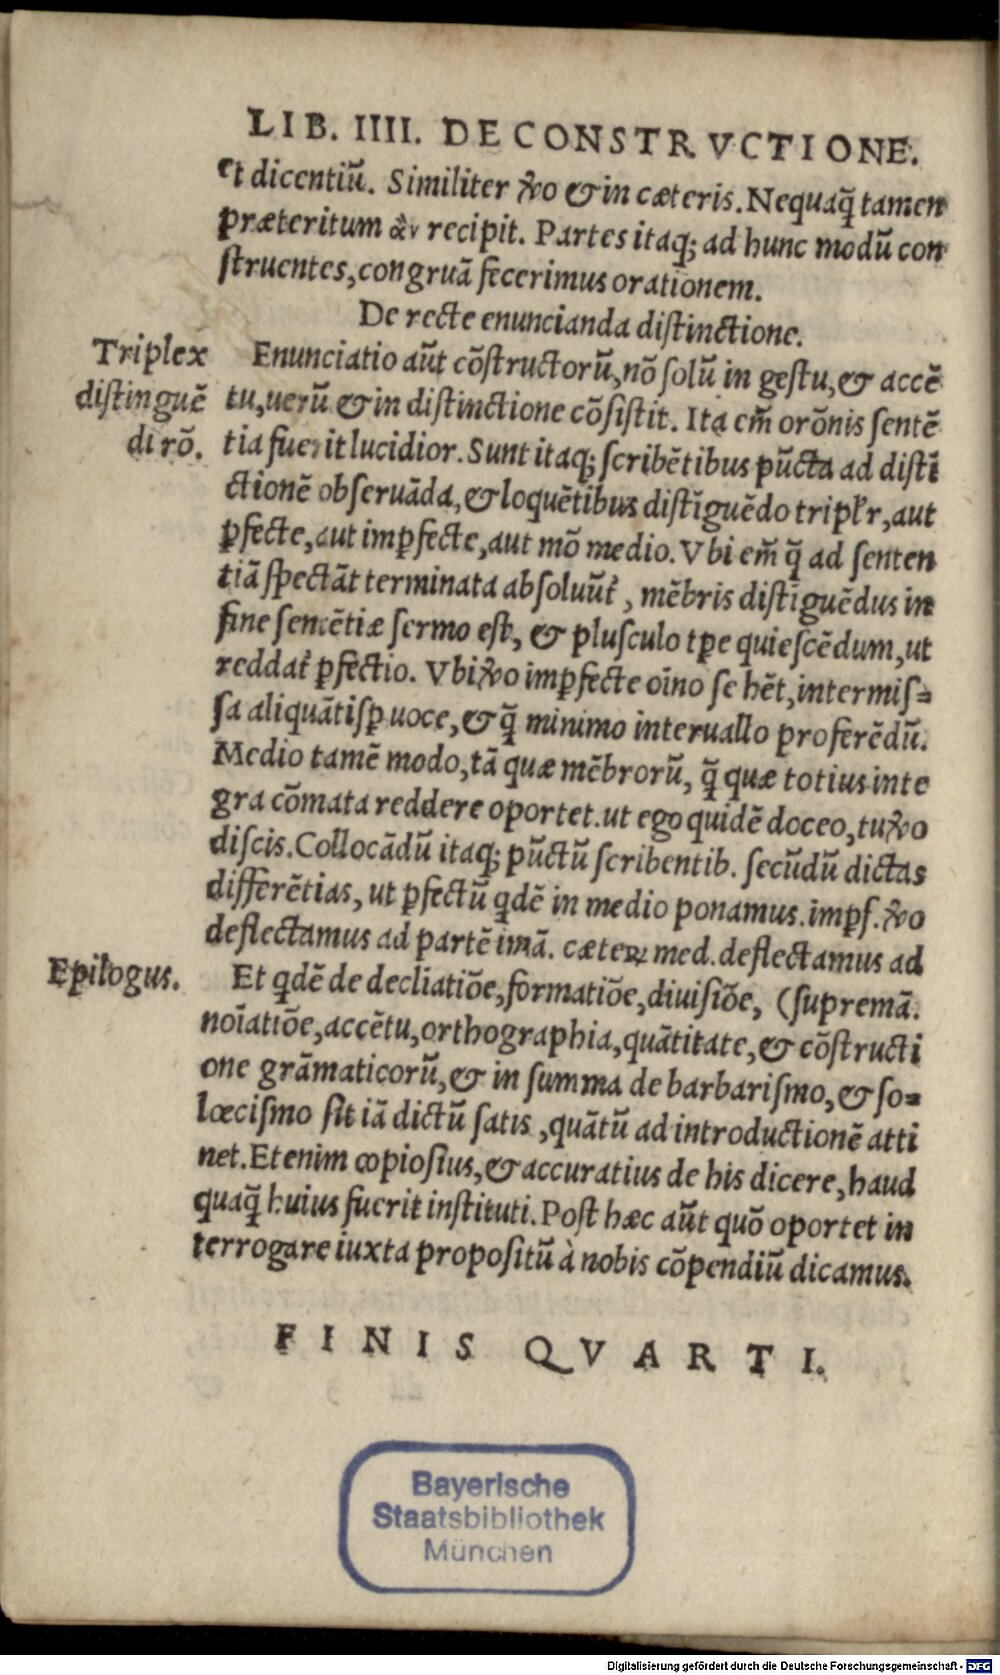 LIB. IIII. DE CONSTRVCTIONE.
et dicentiũ. Similiter ꝟo & in cæteris. Nequaq̃ tamen
præteritum ἂν recipit. Partes itaq; ad hunc modũ con
ſtruentes, congruã fecerimus orationem.
De recte enuncianda diſtinctione.
Triplex
diſtinguẽ
di rõ.
Enunciatio aũt cõſtructorũ, nõ ſolũ in geſtu, & accẽ
tu, uerũ & in diſtinctione cõſiſtit. Ita em̃ orõnis ſentẽ
tia fuerit lucidior. Sunt itaq; ſcribẽtibus pũcta ad diſtĩ
ctionẽ obſeruãda, & loquẽtibus diſtĩguẽdo tripłr, aut
ꝑfecte, aut imꝑfecte, aut mõ medio. Vbi em̃ q̃ ad ſenten
tiã ſpectãt terminata abſoluũt, mẽbris diſtĩguẽdus in
fine ſentẽtiæ ſermo eſt, & pluſculo tꝑe quieſcẽdum, ut
reddat ꝑfectio. Vbi ꝟo imꝑfecte oĩno ſe hẽt, intermiſ=
ſa aliquãtiſꝑ uoce, & q̃ minimo interuallo proferẽdũ.
Medio tamẽ modo, tã quæ mẽbrorũ, q̃ quæ totius inte
gra cõmata reddere oportet. ut ego quidẽ doceo, tu ꝟo
diſcis. Collocãdũ itaq; pũctũ ſcribentib. ſecũdũ dictas
differẽtias, ut ꝑfectũ qdẽ in medio ponamus. imꝑf. ꝟo
deflectamus ad partẽ imã. cæteꝝ med. deflectamus ad
Epilogus.
Et qdẽ de decliatiõe, formatiõe, diuiſiõe, (ſupremã.
noĩatiõe, accẽtu, orthographia, quãtitate, & cõſtructi
one grãmaticorũ, & in ſumma de barbariſmo, & ſo=
lœciſmo ſit iã dictũ ſatis, quãtũ ad introductionẽ atti
net. Etenim copioſius, & accuratius de his dicere, haud
quaq̃ huius fuerit inſtituti. Poſt hæc aũt quõ oportet in
terrogare iuxta propoſitũ à nobis cõpendiũ dicamus.
FINIS QVARTI.
Bayerische
Staatsbibliothek
München
Digitalisierung gefördert durch die Deutsche Forschungsgemeinschaft - DFG